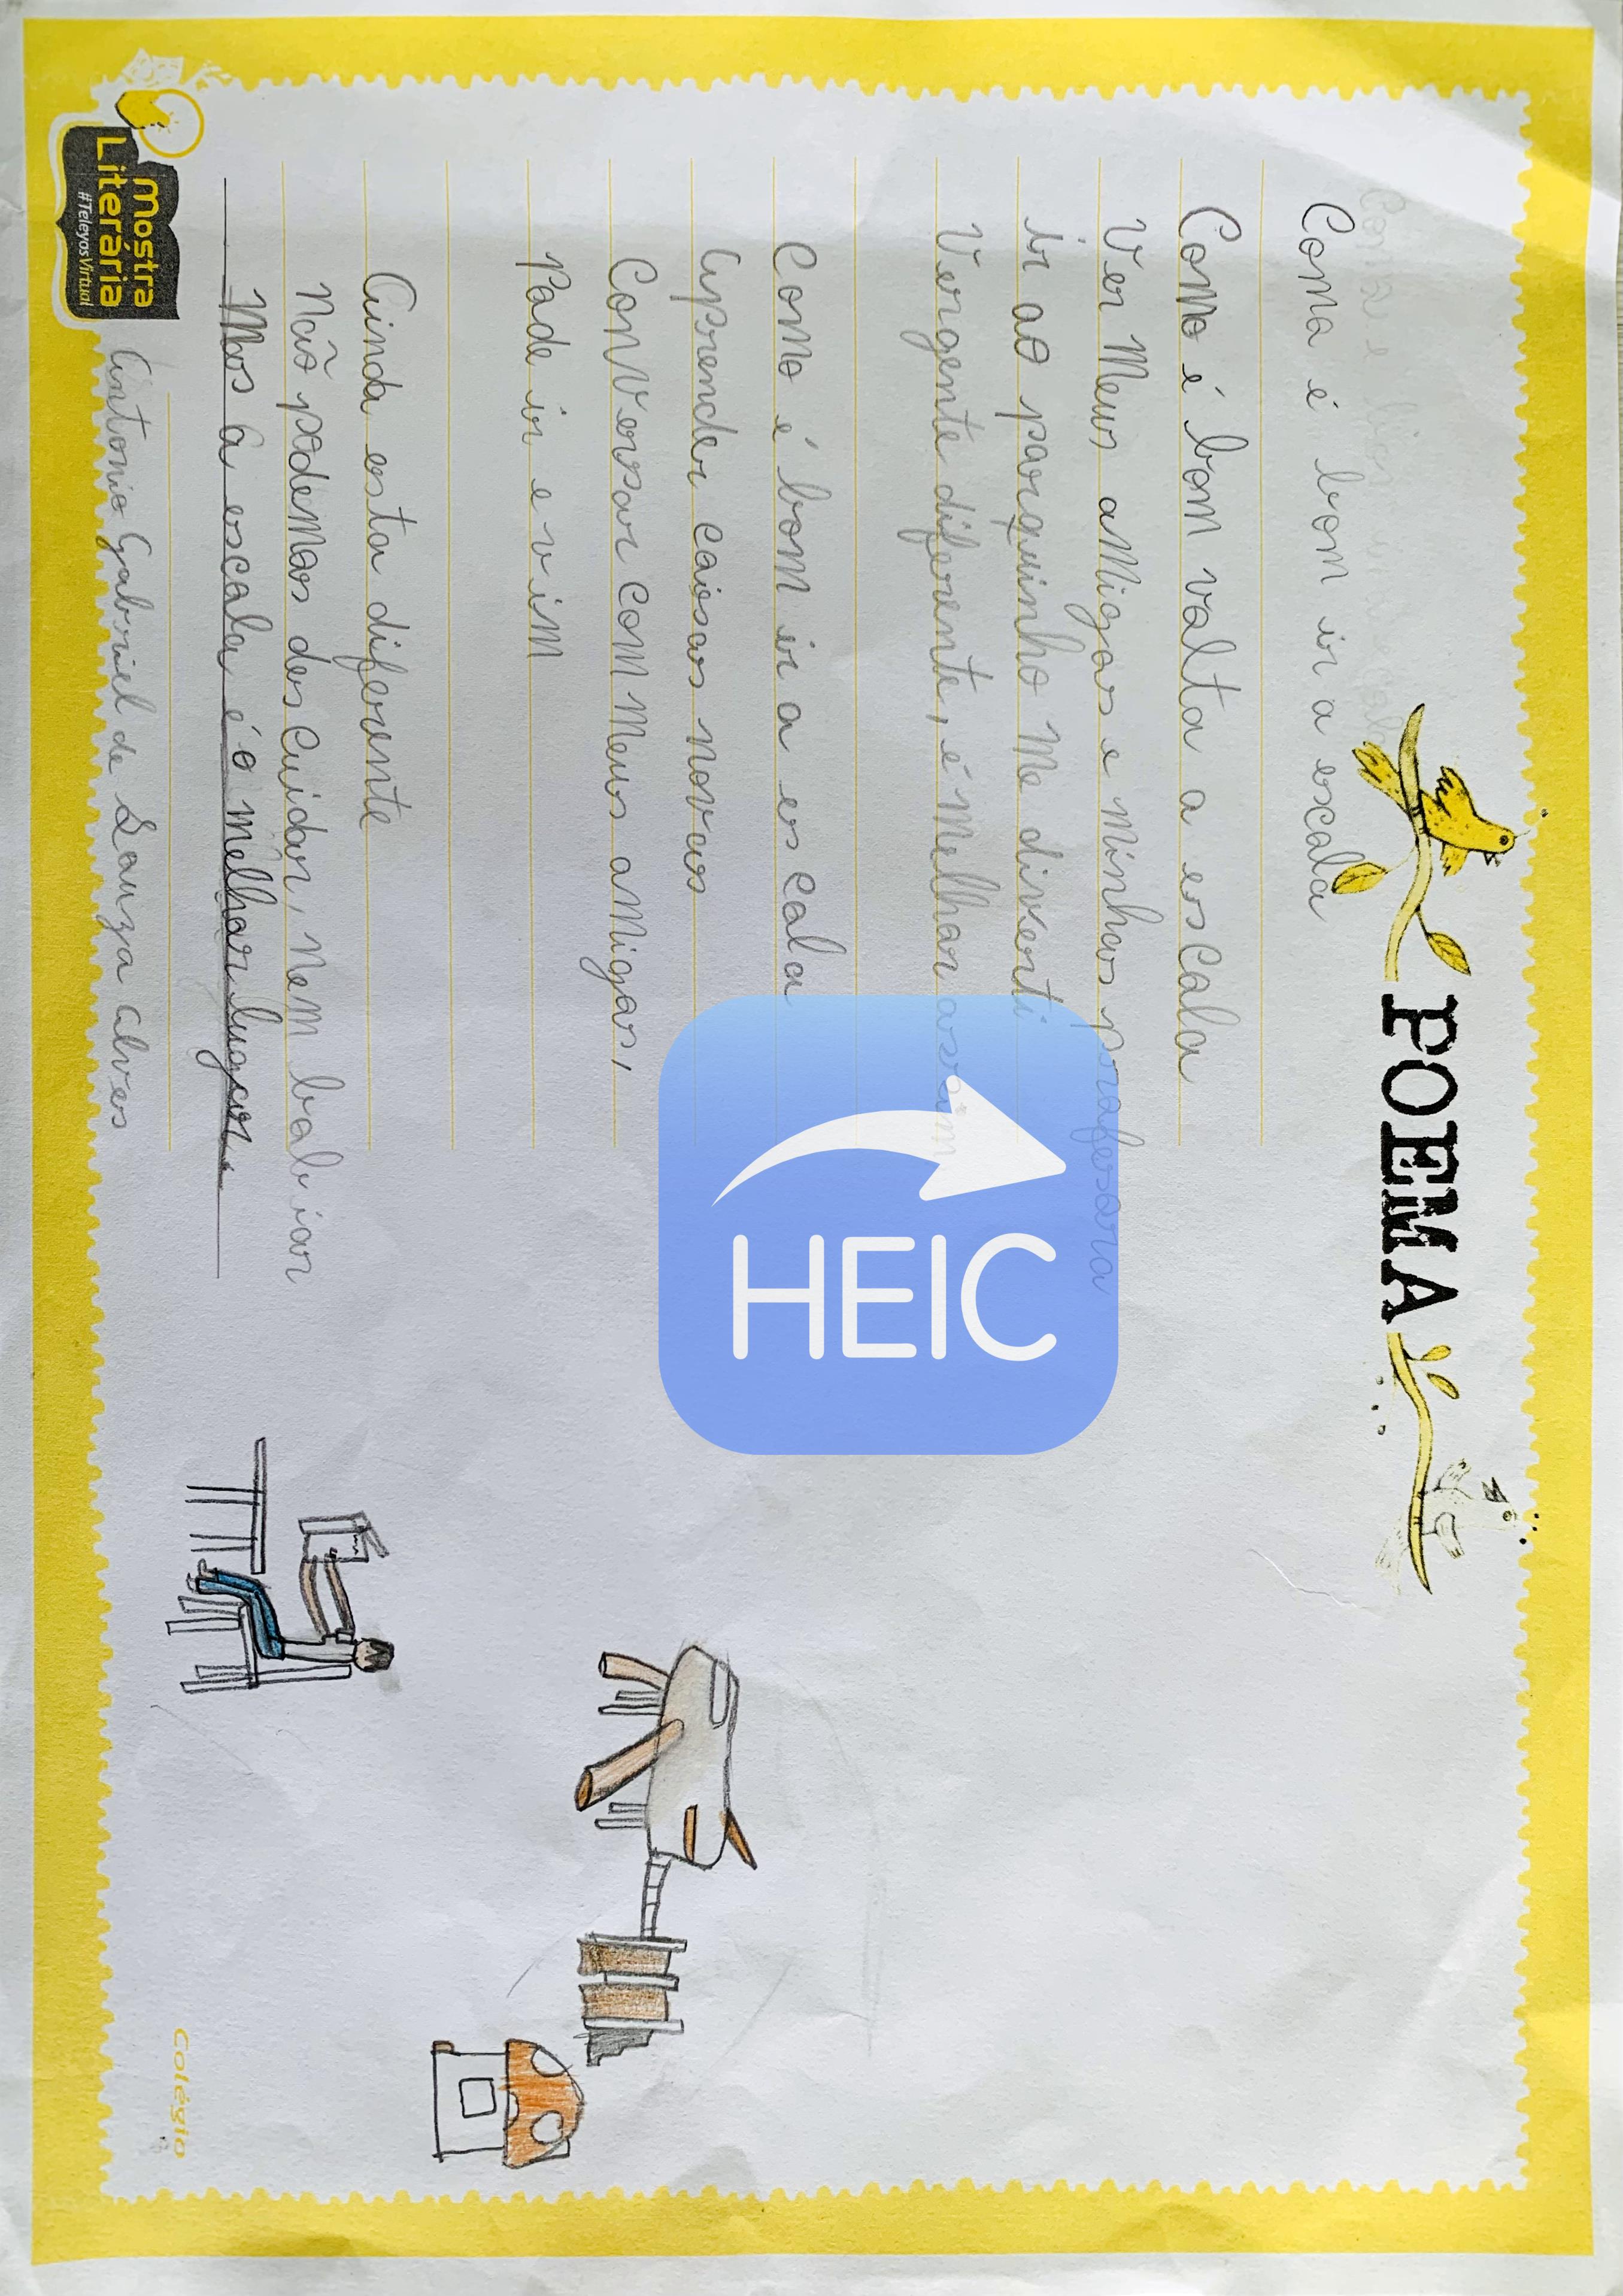 POEMA
Como é bom ir a escola
Como é bom volta a escola
Ver Meus aMigos e Minhas professora
ir ao parquinho Me diverti
Vergente diferente, é Melhor assim
Como é bom ir a escola
Aprender coisas novas
Conversar com Meus aMigos,
Pode ir e vim
Ainda esta diferente
Não podemos descuidar, Nem bobiar
Mos a escola é o Melhor lugar.
Antonio Gabriel de Souza Alves
Mostra
Literária
#TeleyosVirtual
Colégio
HEIC